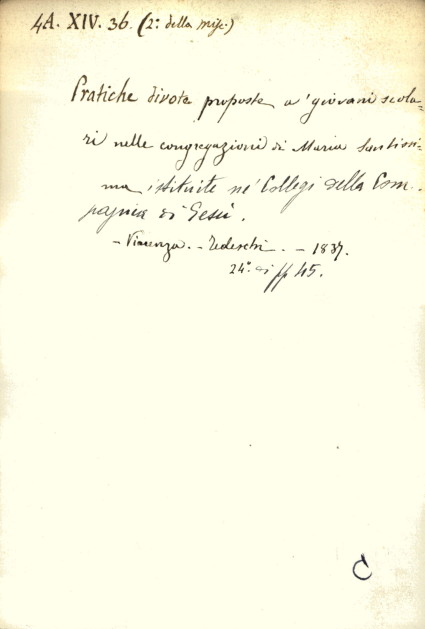 4A. XIV. 36. (2º: della misc.)
Pratiche divote proposte a' giovani scola-
ri nelle congregazioni di Maria Santissi-
ma istituite ne' Collegi della Com-
pagnia di Gesù.
- Vicenza. - Tedeschi. - 1837.
24º. di pp 45.
C